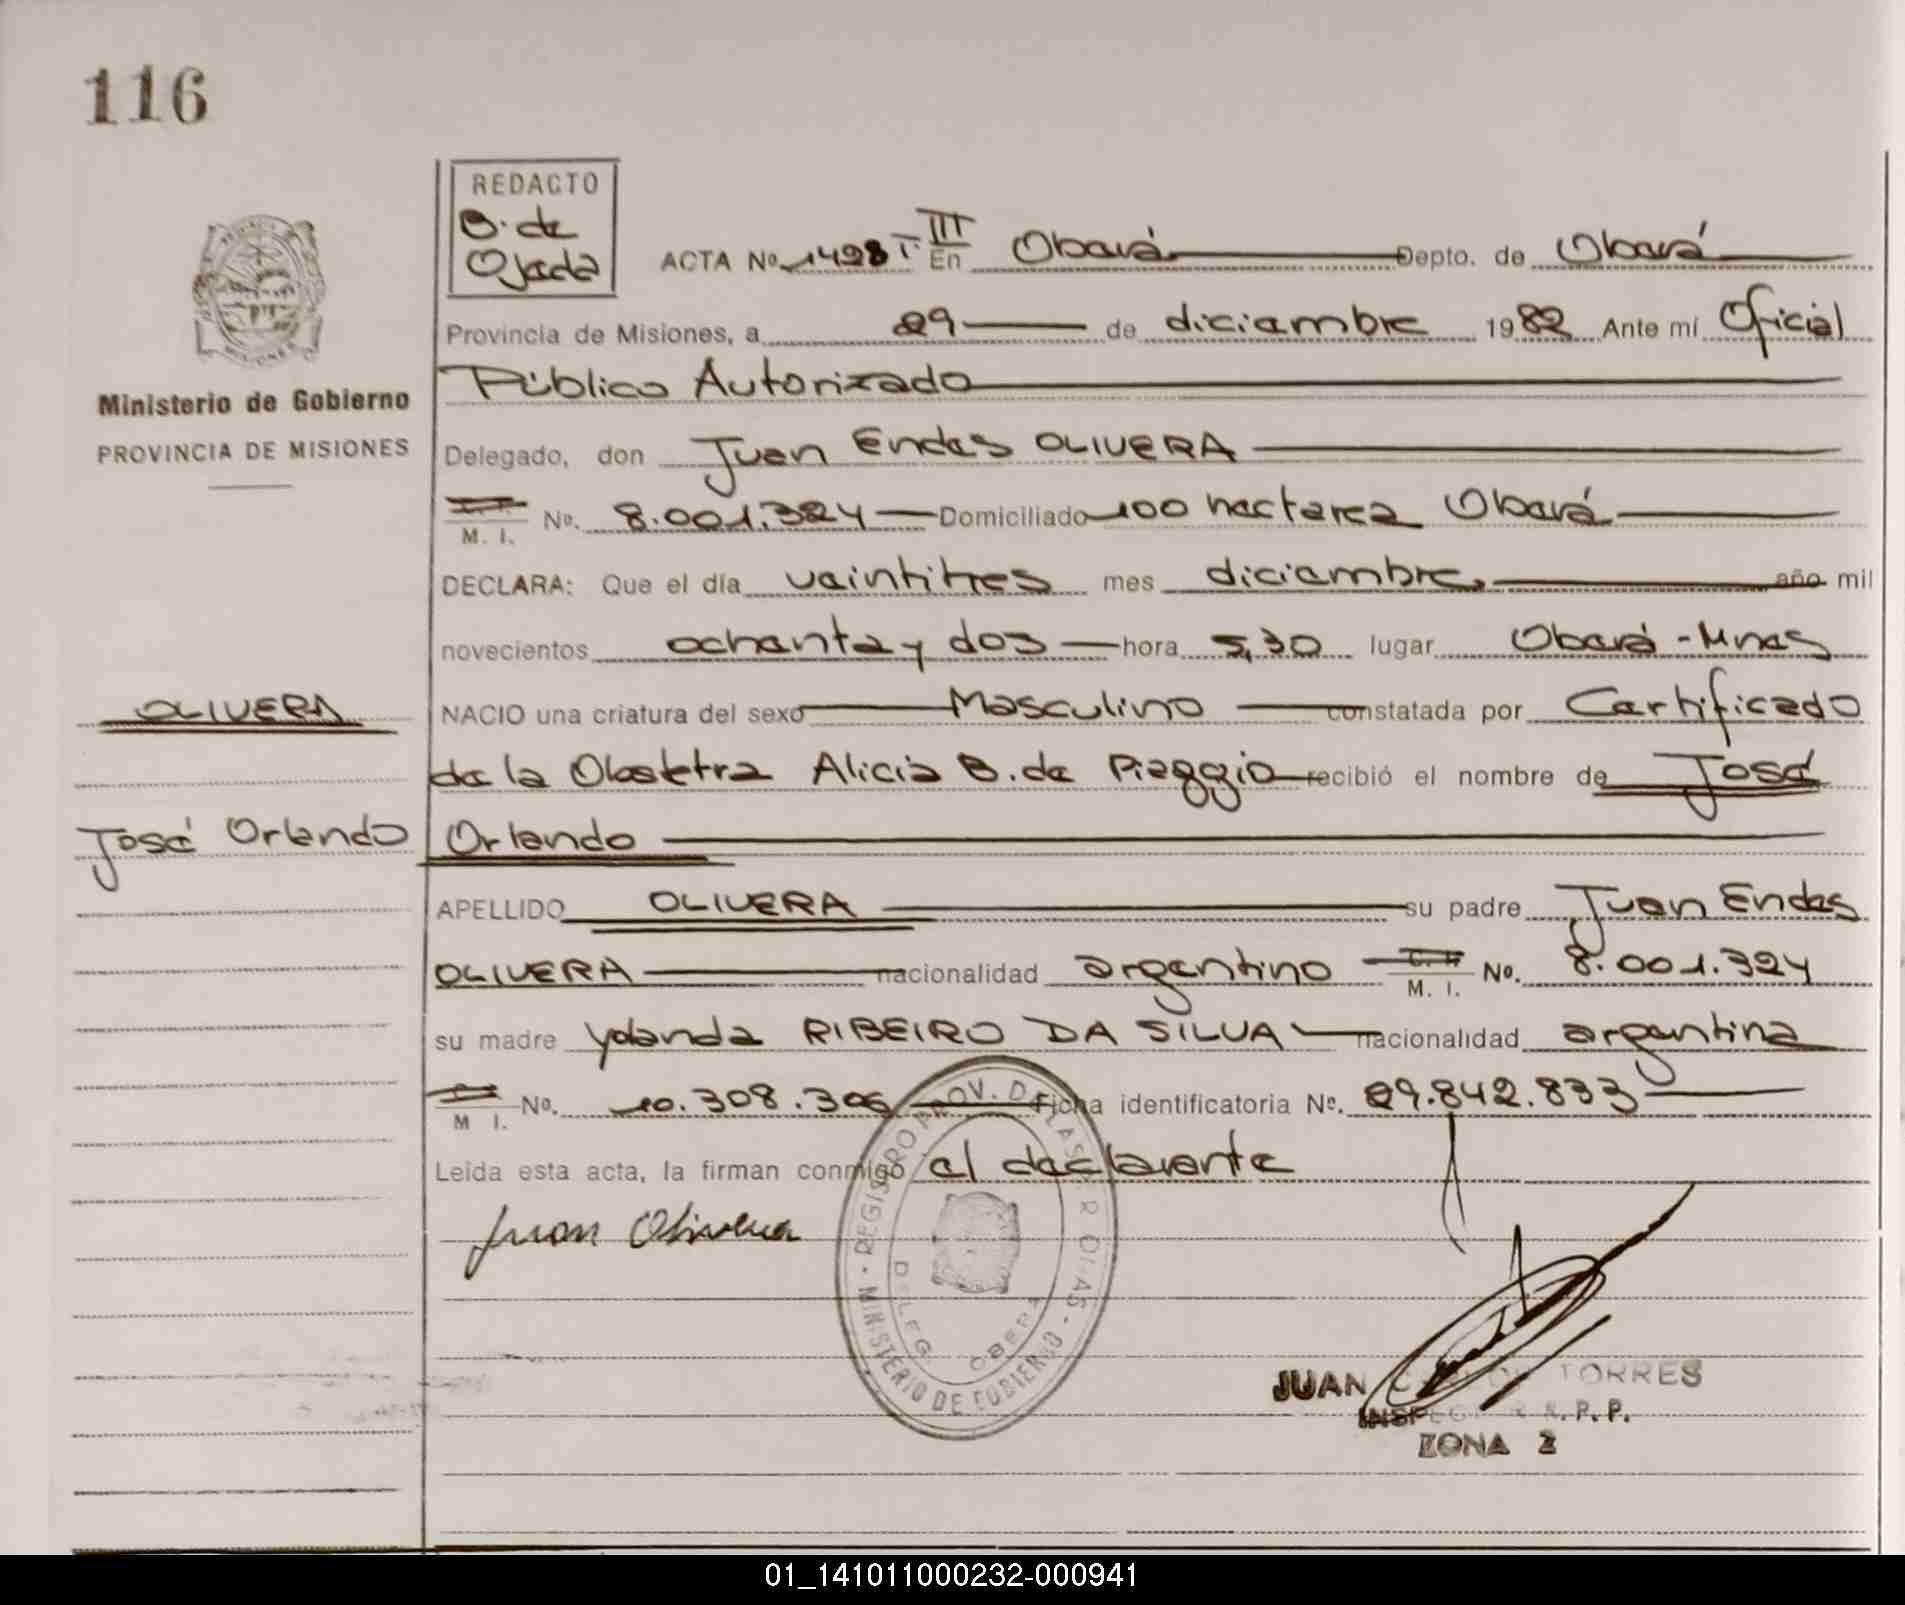 116
REDACTO
B. de
Ojeda
ACTA Nº 1498 T. III En Oberá Depto. de Oberá
Provincia de Misiones, a 29 de diciembre 1982 Ante mí Oficial
Público Autorizado
Ministerio de Gobierno
PROVINCIA DE MISIONES
Delegado, don Juan Endes OLIVERA
M. I. Nº. 8.001.324 Domiciliado 100 hectarea Oberá
DECLARA: Que el día veintitres mes diciembre año mil
novecientos ochenta y dos hora 5,30 lugar Oberá - Mnes
OLIVERA
NACIO una criatura del sexo Masculino constatada por Certificado
de la Obstetra Alicia B. de Pieggio recibió el nombre de José
José Orlando
Orlando
APELLIDO OLIVERA su padre Juan Endes
OLIVERA nacionalidad argentino M. I. Nº. 8.001.324
su madre Yolanda RIBEIRO DA SILVA nacionalidad argentina
M I. Nº. 10.308.306 Ficha identificatoria Nº. 29.842.833
Leída esta acta, la firman conmigo el declarante
Juan Olivera
MINISTERIO DE GOBIERNO - REGISTRO PROV. DE LAS
DELEG. OBERA
JUAN TORRES
INSPECTOR R. P. P.
ZONA 2
01_141011000232-000941